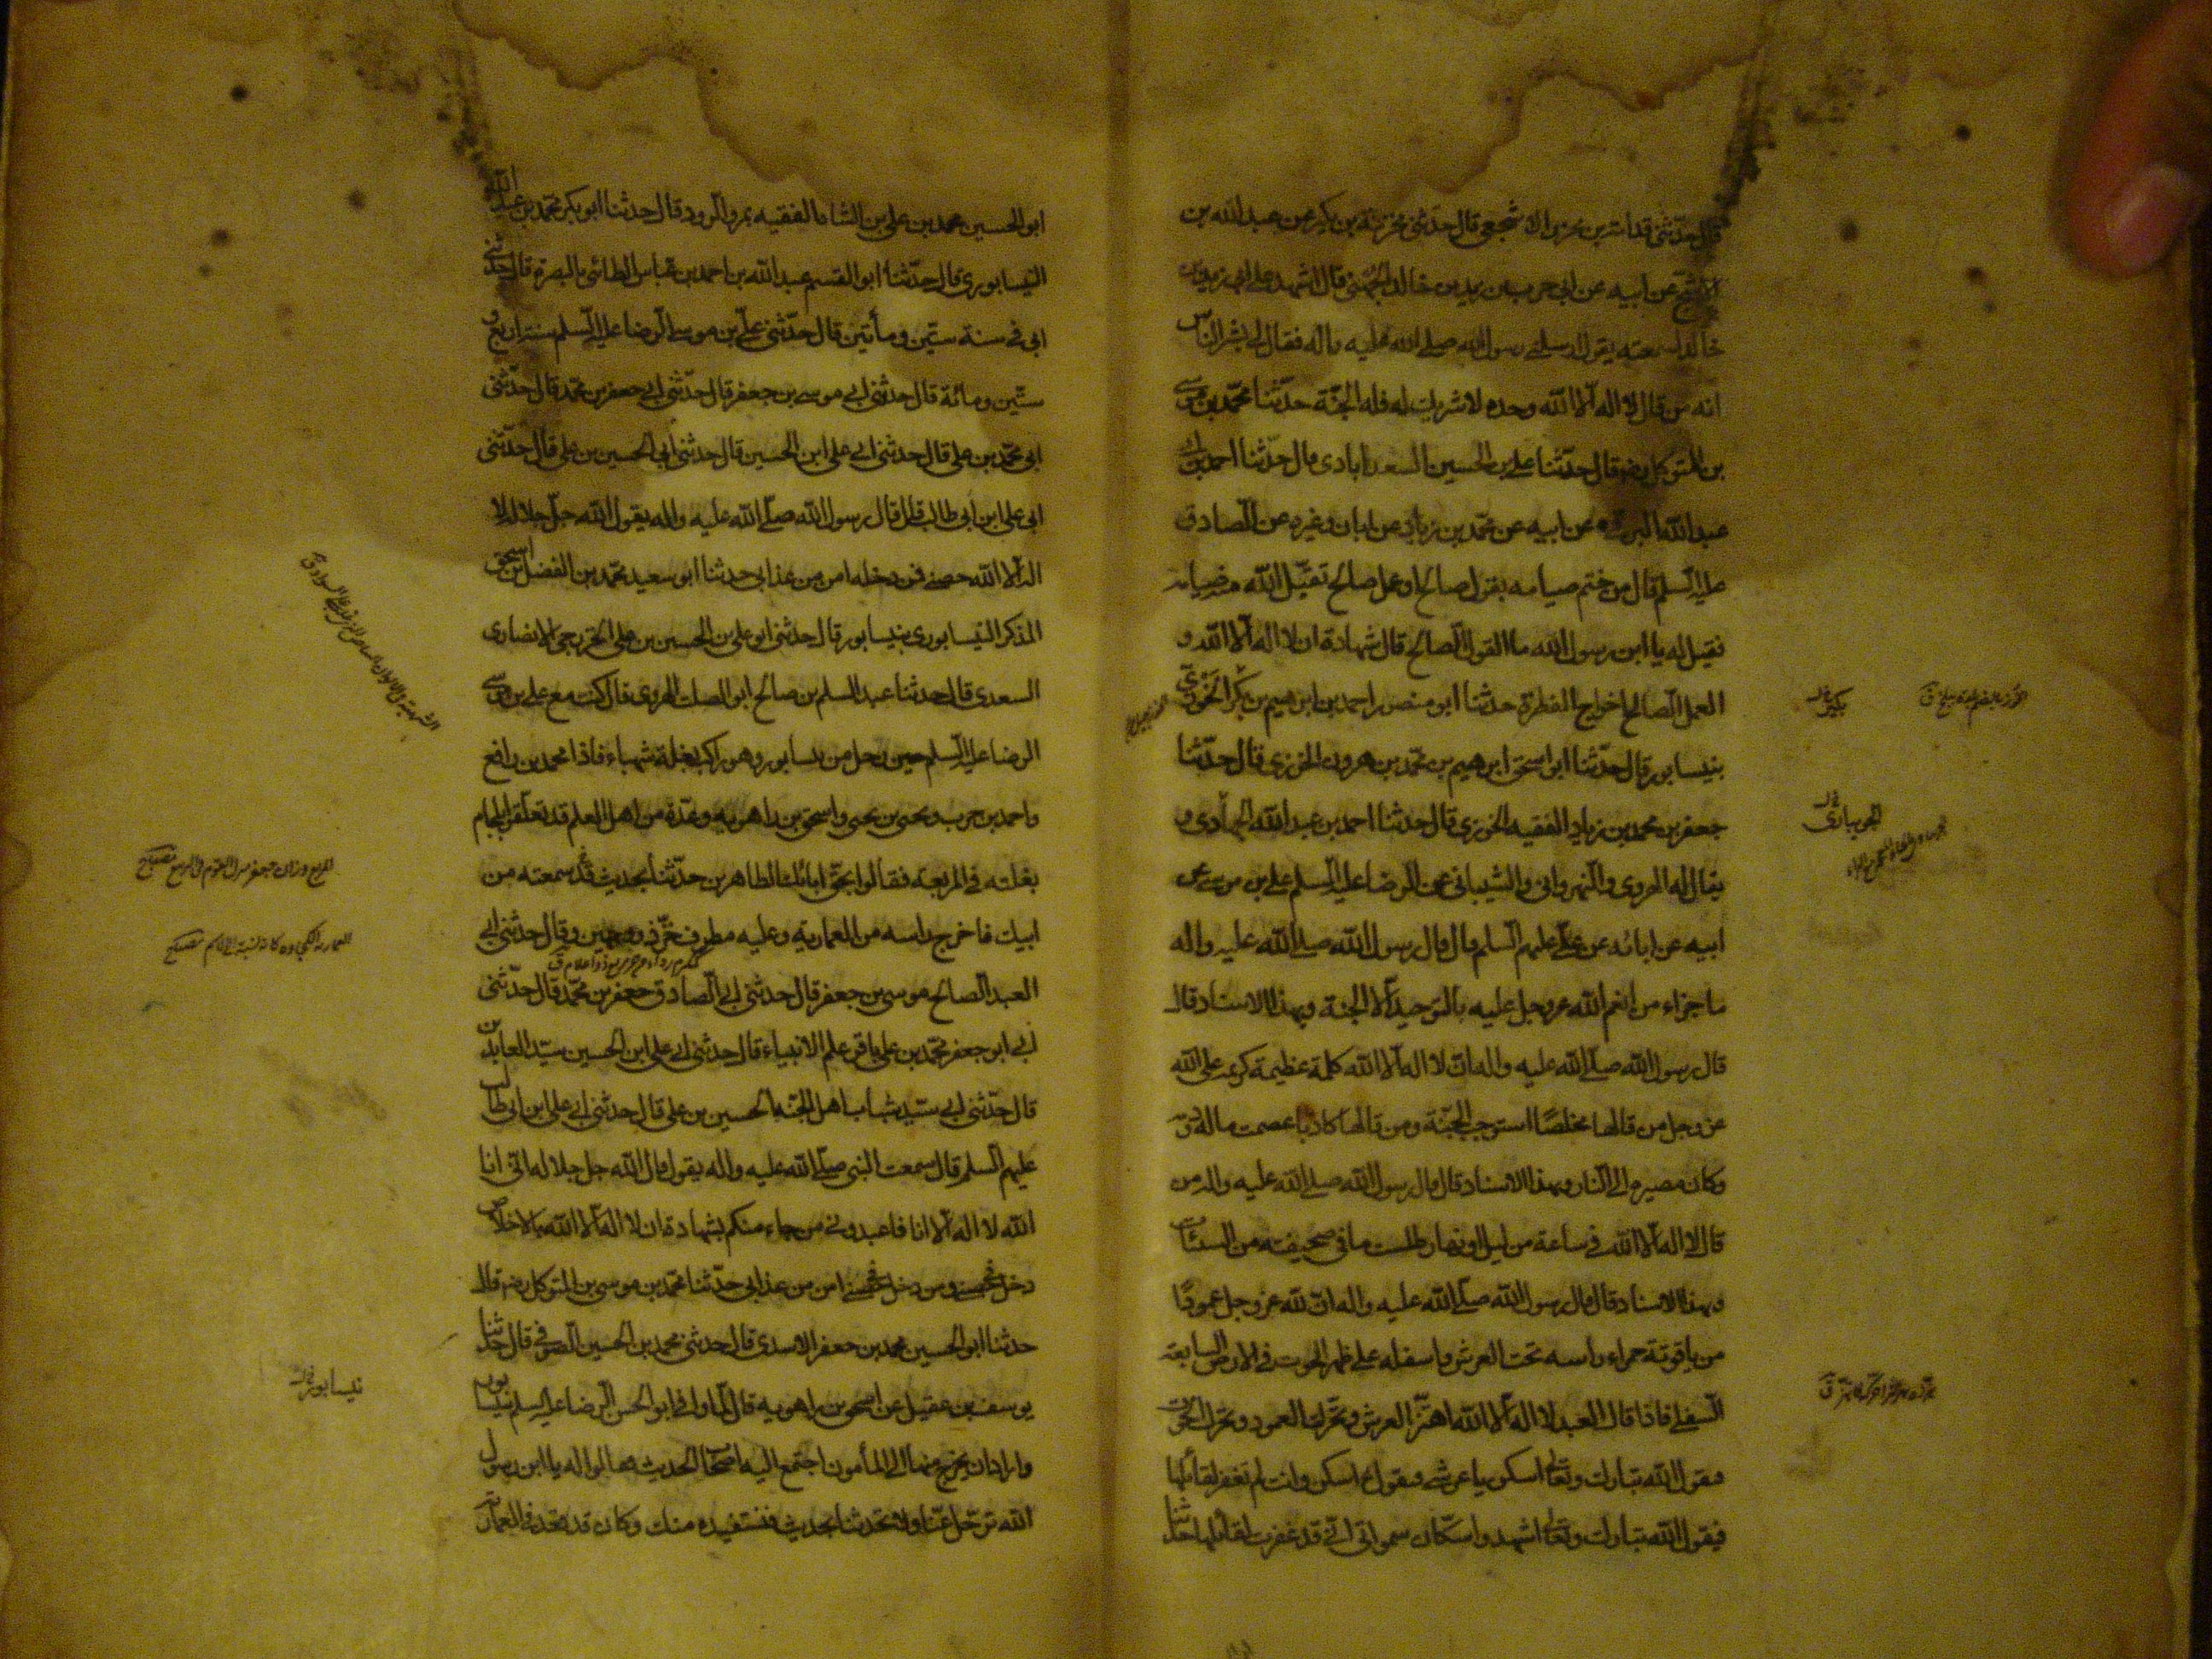 قال حدثنى قدامة بن محرز الاشجعى قال حدثنى مخرمة بن بكير عن عبد الله بن
الاشج عن ابيه عن ابى حرب بن زيد بن خالد الجهنى قال اشهد على ابى زيد بن
خالد لسمعته يقول ارسلنى رسول الله صلى الله عليه واله فقال لى بشر الناس
انه من قال لا اله الا الله وحده لا شريك له فله الجنة حدثنا محمد بن موسى
بن المتوكل رضه قال حدثنا على بن الحسين السعدابادى قال حدثنا احمد بن ابى
عبد الله البرقى عن ابيه عن محمد بن زياد عن ابان وغيره عن الصادق
عليه السلم قال من ختم صيامه بقول صالح او عمل صالح تقبل الله منه صيامه
فقيل له يا ابن رسول الله ما القول الصالح قال شهادة ان لا اله الا الله و
العمل الصالح اخراج الفطرة حدثنا ابو منصور احمد بن ابرهيم بن بكر الخوزى
بنيسابور قال حدثنا ابو اسحق ابرهيم بن محمد بن هرون الخوزى قال حدثنا
جعفر بن محمد بن زياد الفقيه الخوزى قال حدثنا احمد بن عبد الله و
يقال له الهروى والنهروانى والشيبانى عن الرضا عليه السلم على بن موسى عن
ابيه عن ابائه عن على عليهم السلم قال قال رسول الله صلى الله عليه واله
ما جزاء من انعم الله عز وجل عليه بالتوحيد الا الجنة وبهذا الاسناد قال
قال رسول الله صلى الله عليه واله ان لا اله الا الله كلمة عظيمة كريمة على الله
عز وجل من قالها مخلصا استوجب الجنة ومن قالها كاذبا عصمت ماله ودمه
وكان مصيره الى النار وبهذا الاسناد قال قال رسول الله صلى الله عليه واله من
قال لا اله الا الله فى ساعة من ليل او نهار طلست ما فى صحيفته من السيئات
وبهذا الاسناد قال قال رسول الله صلى الله عليه واله ان لله عز وجل عمودا
من ياقوتة حمراء راسه تحت العرش واسفله على ظهر الحوت فى الارض السابعة
السفلى فاذا قال العبد لا اله الا الله اهتز العرش وتحرك العمود وتحرك الحوت
فيقول الله تبارك وتعالى اسكن يا عرشى فيقول اسكن وانت لم تغفر لقائلها
فيقول الله تبارك وتعالى اشهدوا سكان سمواتى انى قد غفرت لقائلها حدثنا
ابو الحسين محمد بن على بن الشاه الفقيه بمرو الرود قال حدثنا ابو بكر محمد بن عبد الله
النيسابورى قال حدثنا ابو القسم عبد الله بن احمد بن عباس الطائى بالبصرة قال حدثنى
ابى فى سنة ستين ومأتين قال حدثنى على بن موسى الرضا عليه السلم سنة اربع و
ستين ومائة قال حدثنى ابى موسى بن جعفر قال حدثنى ابى جعفر بن محمد قال حدثنى
ابى محمد بن على قال حدثنى ابى على ابن الحسين قال حدثنى ابى الحسين بن على قال حدثنى
ابى على ابن ابى طالب قال قال رسول الله صلى الله عليه واله يقول الله جل جلاله لا
اله الا الله حصنى فمن دخله امن من عذابى حدثنا ابو سعيد محمد بن الفضل بن اسحق
المذكر النيسابورى بنيسابور قال حدثنى ابو على بن الحسين بن على الخزرجى الانصارى
السعدى قال حدثنا عبد السلم بن صالح ابو الصلت الهروى قال كنت مع على بن موسى
الرضا عليه السلم حين رحل من نيسابور وهو راكب بغلة شهباء فاذا محمد بن رافع
واحمد بن حرب ويحيى بن يحيى واسحق بن راهويه وعدة من اهل العلم قد تعلقوا بلجام
بغلته فى المربعة فقالوا بحق ابائك الطاهرين حدثنا بحديث قد سمعته من
ابيك فاخرج راسه من العمارية وعليه مطرف خز ذو وجهين وقال حدثنى ابى
العبد الصالح موسى بن جعفر قال حدثنى ابى الصادق جعفر بن محمد قال حدثنى
ابى ابو جعفر محمد بن على باقر علم الانبياء قال حدثنى ابى على ابن الحسين سيد العابدين
قال حدثنى ابى سيد شباب اهل الجنة الحسين بن على قال حدثنى ابى على ابن ابى طالب
عليهم السلم قال سمعت النبى صلى الله عليه واله يقول قال الله جل جلاله انى انا
الله لا اله الا انا فاعبدونى من جاء منكم بشهادة ان لا اله الا الله بالاخلاص
دخل فى حصنى ومن دخل فى حصنى امن من عذابى حدثنا محمد بن موسى بن المتوكل رضه قال
حدثنا ابو الحسين محمد بن جعفر الاسدى قال حدثنى محمد بن الحسين الصوفى قال حدثنا
يوسف بن عقيل عن اسحق بن راهويه قال لما وافى ابو الحسن الرضا عليه السلم نيسابور
واراد ان يخرج منها الى المأمون اجتمع اليه اصحاب الحديث فقالوا له يا ابن رسول
الله ترحل عنا ولا تحدثنا بحديث فنستفيده منك وكان قد قعد فى العمارية
نيسابور